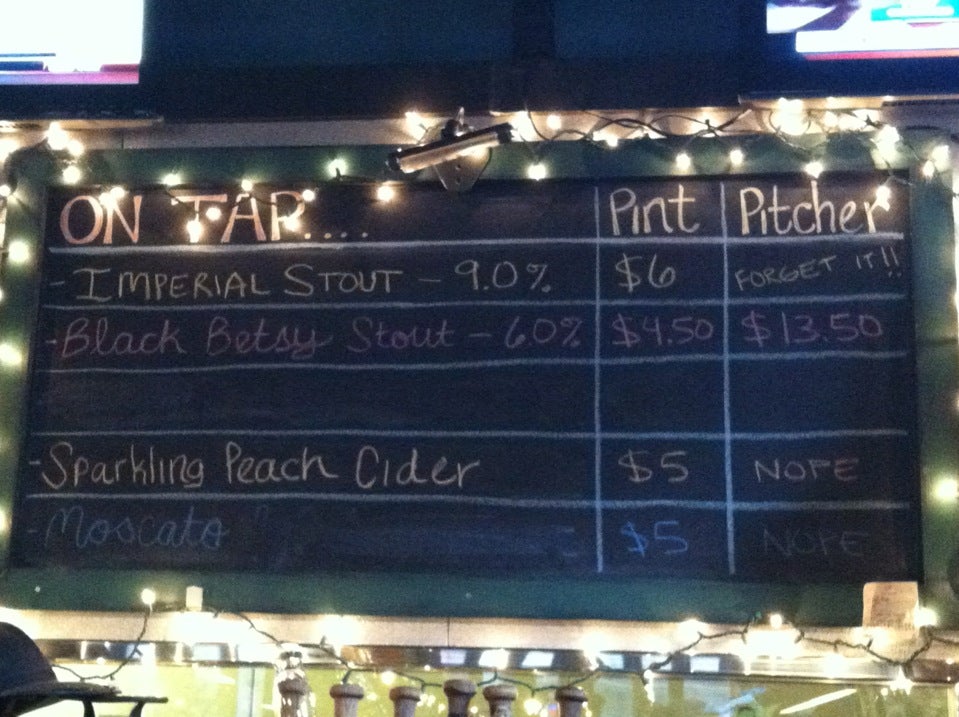 ON TAP.... Pint Pitcher
- IMPERIAL STOUT - 9.0% $6 FORGET IT!!
- Black Betsy Stout - 6.0% $4.50 $13.50
- Sparkling Peach Cider $5 NOPE
- Moscato $5 NOPE